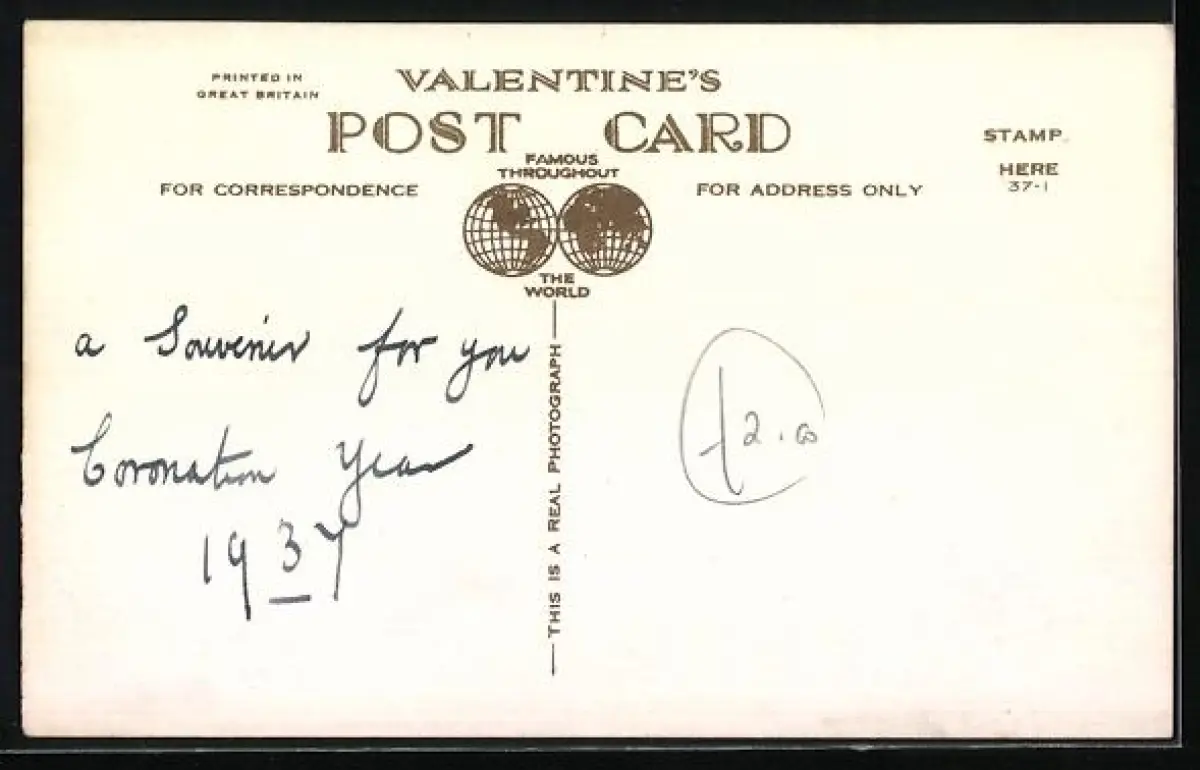 PRINTED IN
GREAT BRITAIN
VALENTINE'S
POST CARD
FAMOUS
THROUGHOUT
THE
WORLD
STAMP
HERE
37-1
FOR CORRESPONDENCE
FOR ADDRESS ONLY
a Souvenir for you
Coronation Year
1937
THIS IS A REAL PHOTOGRAPH
£2.00